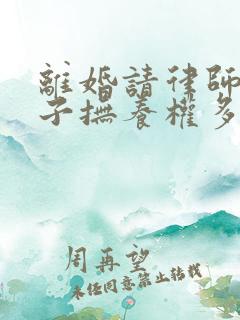 離婚請律師
子撫養權多
周再望
未經同意禁止轉載